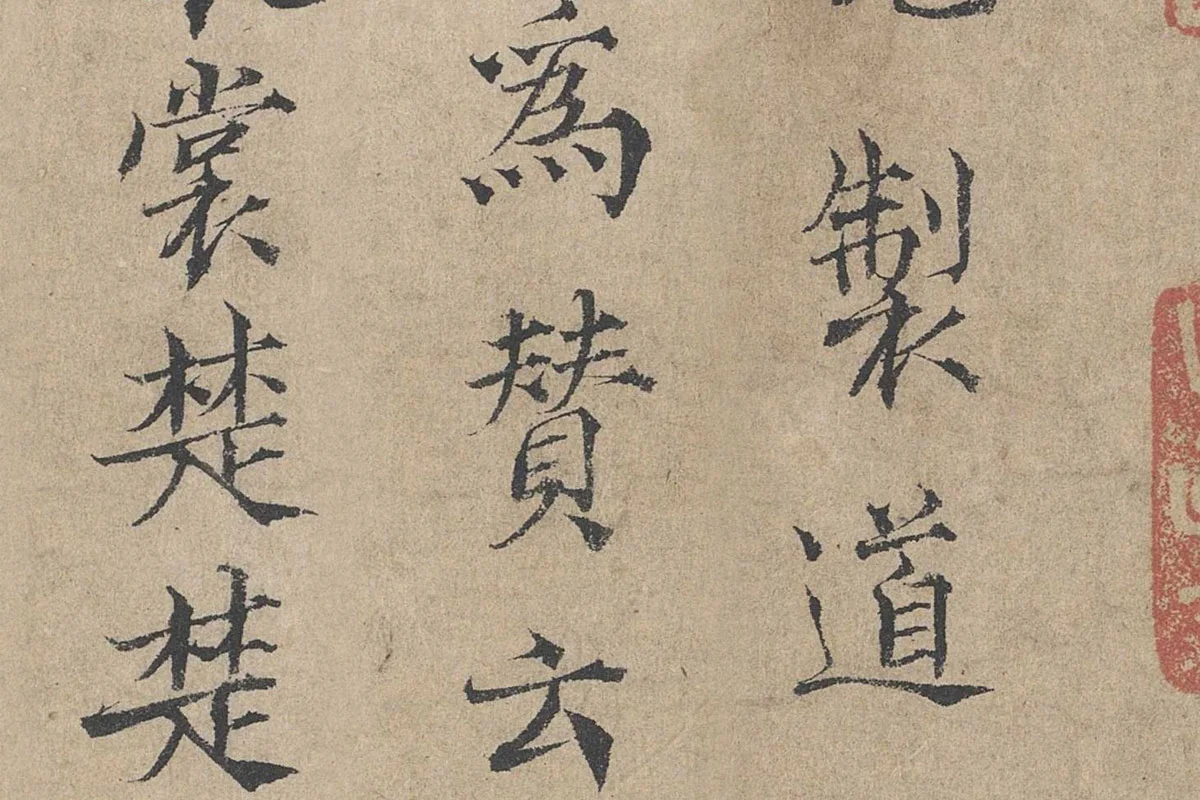 製道
爲贊云
裳楚楚